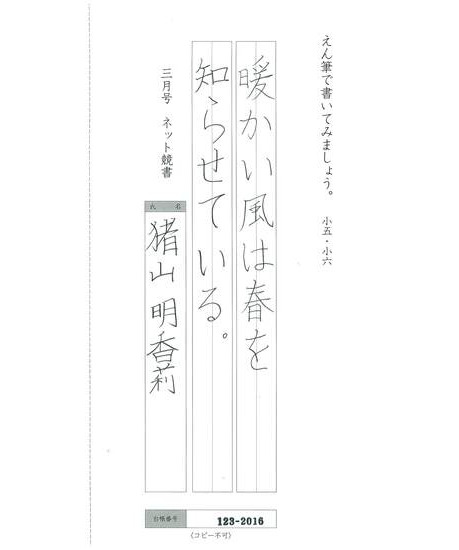 えん筆で書いてみましょう。 小五・小六
暖かい風は春を
知らせている。
三月号 ネット競書
氏名
猪山明香莉
台帳番号
123-2016
(コピー不可)